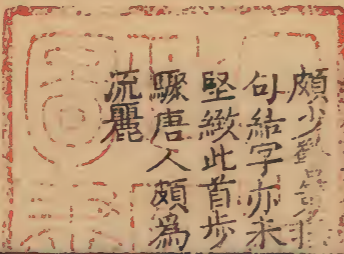 頗少
句結字亦未
堅緻此首步
驟唐人頗爲
流麗